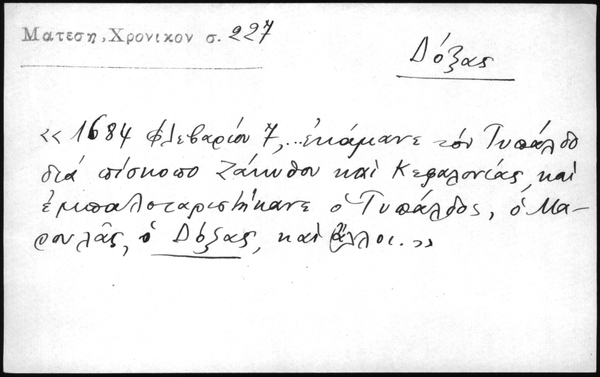 Ματεση, Χρονικον σ. 227
Δόξας
«1684 Φλεβαρίου 7,...ἐκάμανε τόν Τυπάλδο
διά πίσκοπο Ζάκυθου καί Κεφαλονίας, καί
ἐμπαλοταριστήκανε ὁ Τυπάλδος, ὁ Μα-
ρουλᾶς, ὁ Δόξας, καί ἄλλοι.»